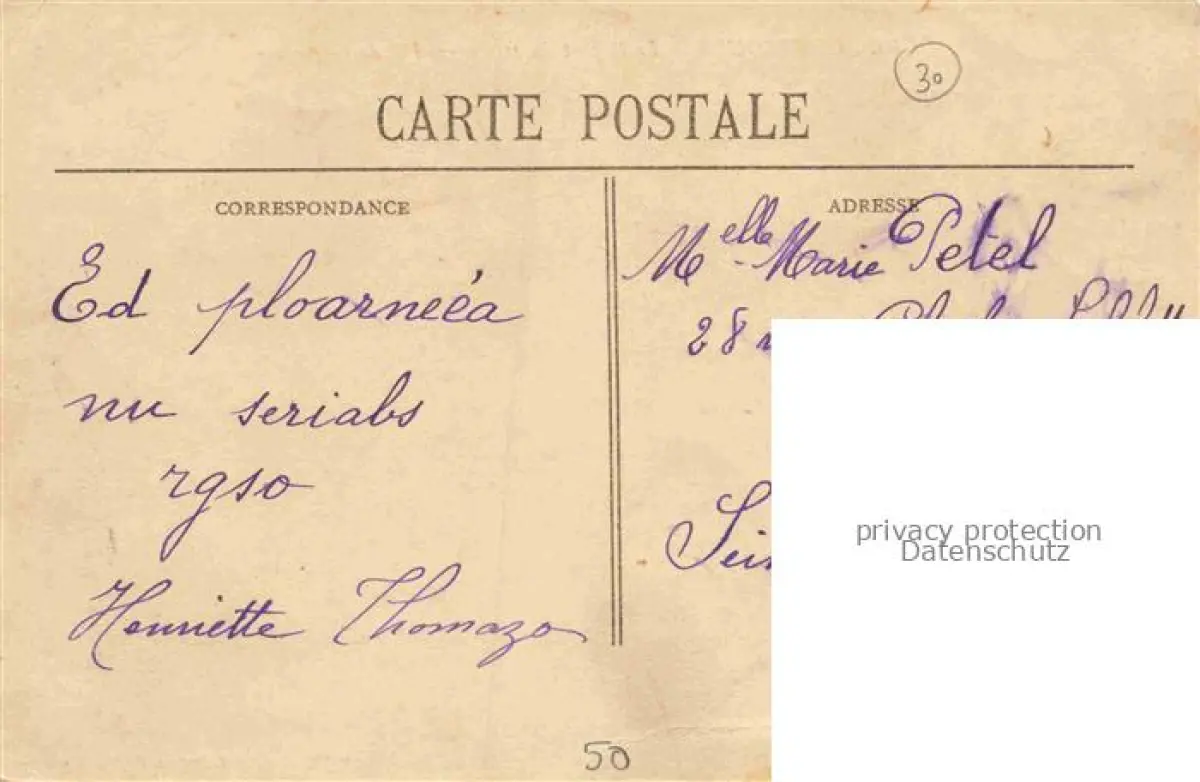 30
CARTE POSTALE
CORRESPONDANCE
Ed ploarneéa
nu seriabs
rgso
Henriette Thomazo
ADRESSE
Melle Marie Petel
28
privacy protection
Datenschutz
50